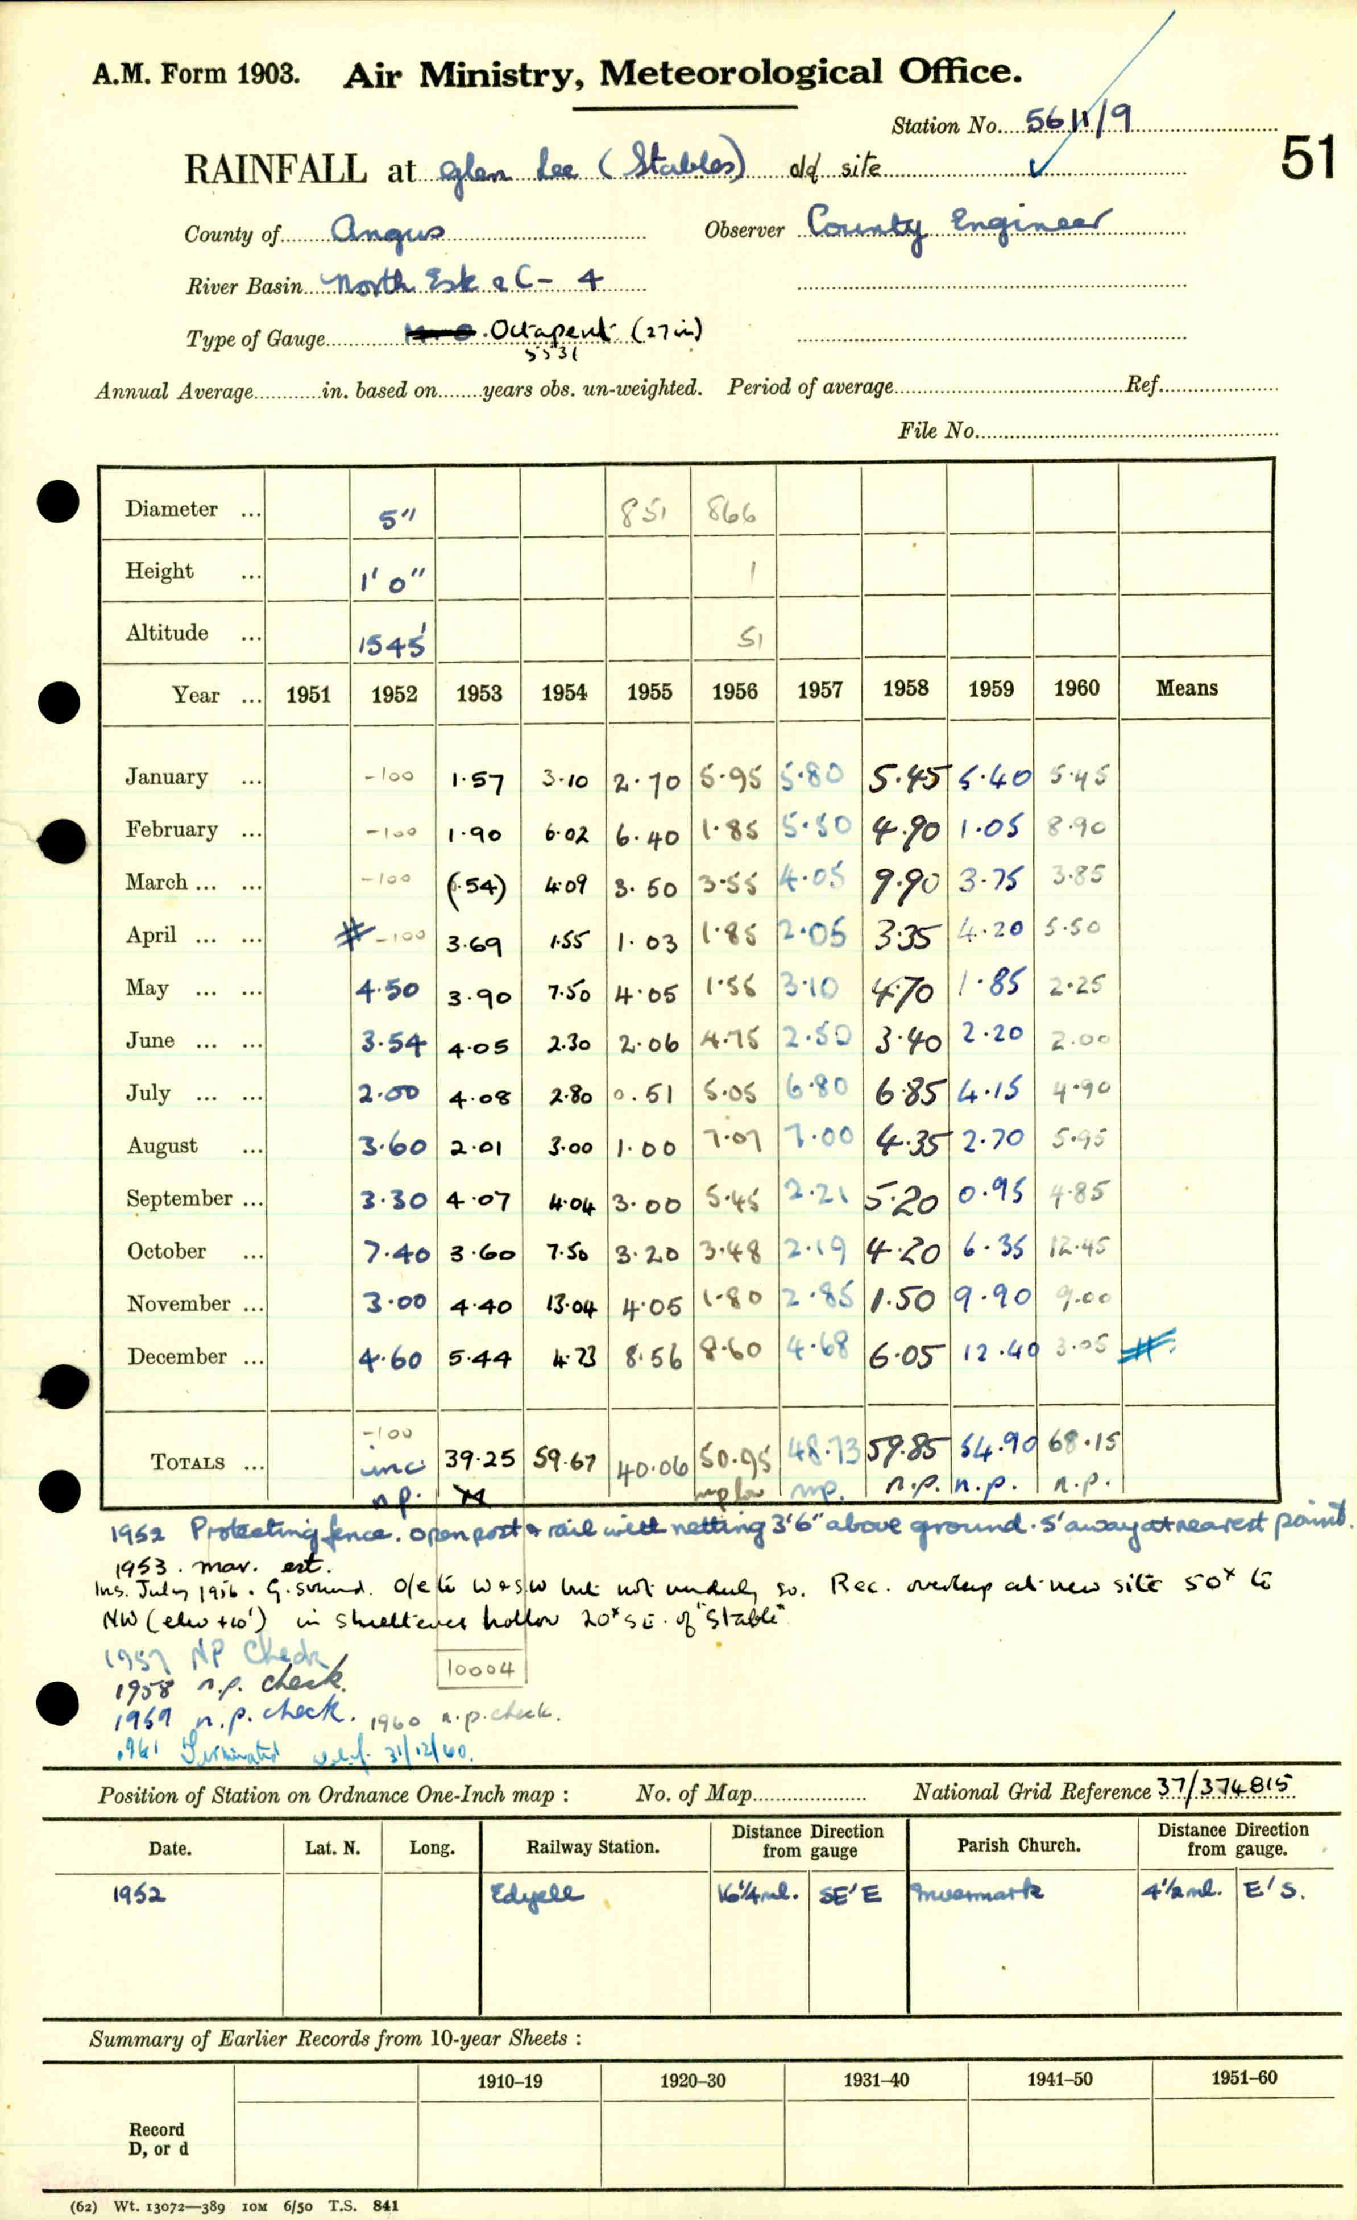 A.M. Form 1903. Air Ministry, Meteorological Office.
Station No. 5611/9
51
RAINFALL at Glen Lee (Stables) old site
County of Angus Observer County Engineer
River Basin North Esk &C - 4
Type of Gauge Octapent (27 in)
5531
Annual Average in. based on years obs. un-weighted. Period of average Ref.
File No.
Diameter ... 5" 851 866
Height ... 1' 0" 1
Altitude ... 1545' 51
Year ... 1951 1952 1953 1954 1955 1956 1957 1958 1959 1960 Means
January ... -100 1.57 3.10 2.70 5.95 5.80 5.45 5.40 5.45
February ... -100 1.90 6.02 6.40 1.85 5.50 4.90 1.05 8.90
March ... ... -100 (.54) 4.09 3.50 3.55 4.05 9.90 3.75 3.85
April ... ... # -100 3.69 1.55 1.03 1.85 2.05 3.35 4.20 5.50
May ... ... 4.50 3.90 7.50 4.05 1.55 3.10 4.70 1.85 2.25
June ... ... 3.54 4.05 2.30 2.06 4.75 2.50 3.40 2.20 2.00
July ... ... 2.00 4.08 2.80 0.51 5.05 6.80 6.85 4.15 4.90
August ... 3.60 2.01 3.00 1.00 7.07 7.00 4.35 2.70 5.95
September ... 3.30 4.07 4.04 3.00 5.45 2.21 5.20 0.95 4.85
October ... 7.40 3.60 7.50 3.20 3.48 2.19 4.20 6.35 12.45
November ... 3.00 4.40 13.04 4.05 1.80 2.85 1.50 9.90 9.00
December ... 4.60 5.44 4.23 8.56 8.60 4.68 6.05 12.40 3.05 #
TOTALS ... -100 39.25 59.67 40.06 50.95 48.73 59.85 54.90 68.15
inc n.p. np. n.p. n.p. n.p.
1952 Protecting fence. open post & rail with netting 3'6" above ground. 5' away at nearest point.
1953. mar. est.
Ins. July 1956. G. sound. O/e to W & SW but not unduly so. Rec. overlap at new site 50x to
NW (elev +10') in sheltered hollow 20x SE. of "Stable"
1957 NP Check
10004
1958 n.p. check.
1959 n.p. check. 1960 n.p. check.
1961 Terminated w.e.f. 31/12/60.
Position of Station on Ordnance One-Inch map : No. of Map National Grid Reference 37/374815
Date. Lat. N. Long. Railway Station. Distance from gauge Direction Parish Church. Distance from gauge. Direction
1952 Edzell 16¼ ml. SE'E Invermark 4½ ml. E'S.
Summary of Earlier Records from 10-year Sheets :
1910–19 1920–30 1931–40 1941–50 1951–60
Record
D, or d
(62) Wt. 13072—389 10M 6/50 T.S. 841